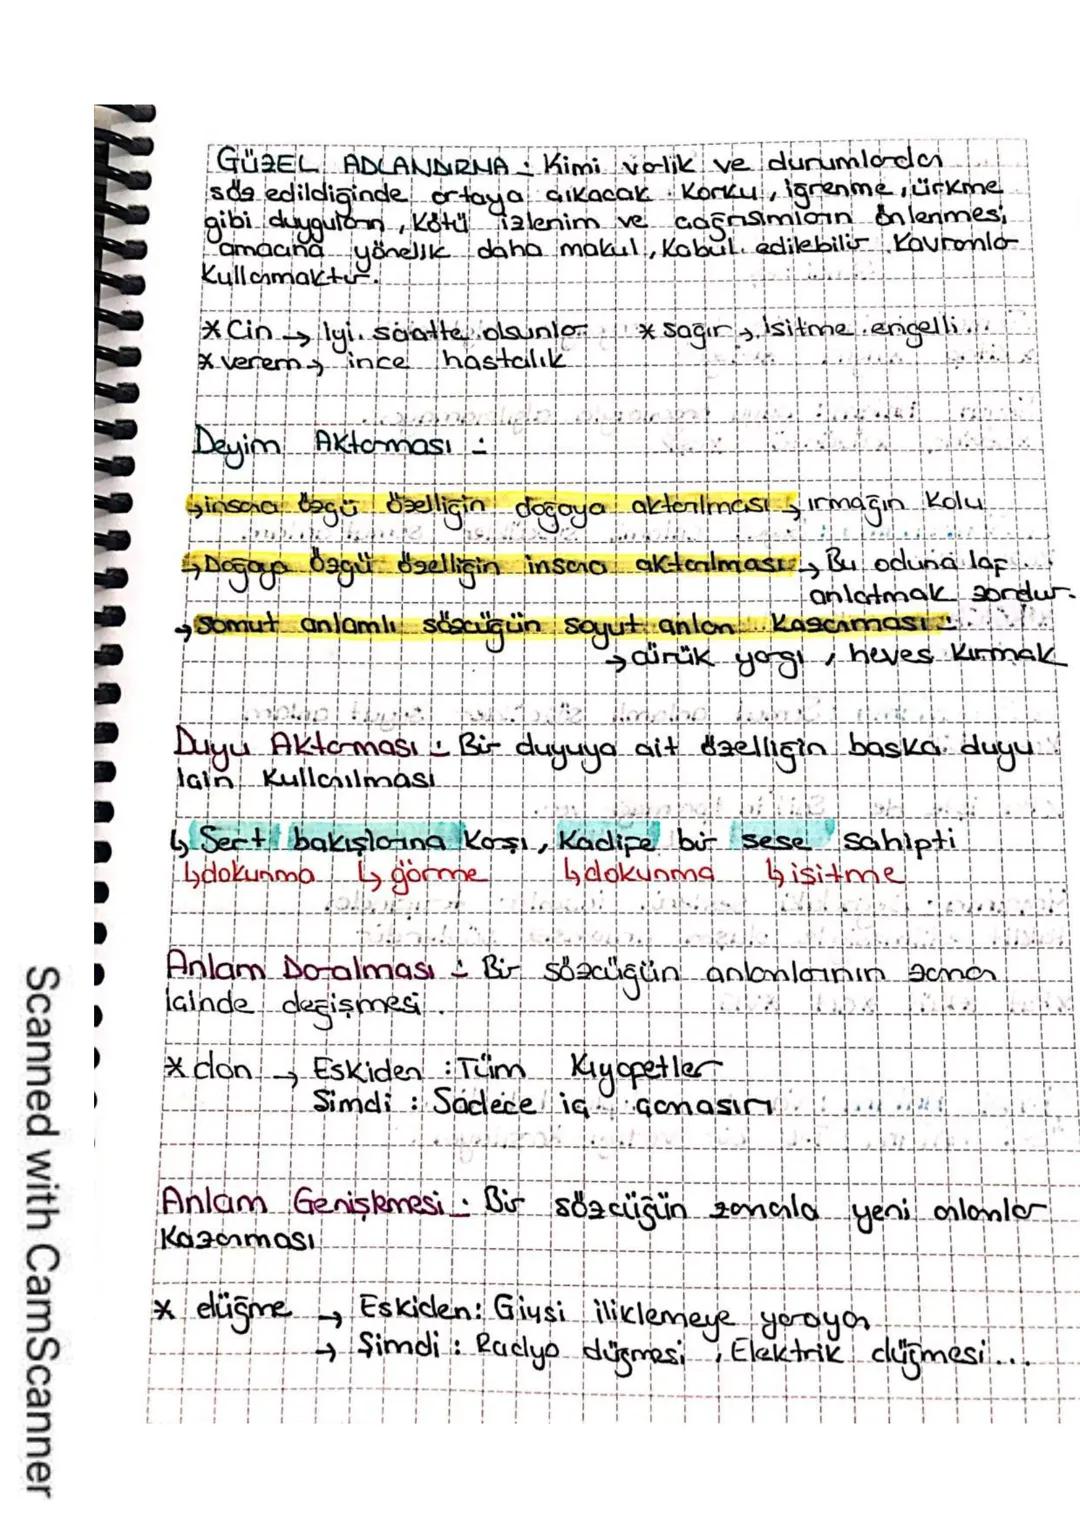 GÜZEL ADLANDIRMA : Kimi varlık ve durumlardan
söz edildiğinde ortaya çıkacak korku, iğrenme, ürkme
gibi duyguların, kötü izlenim ve çağrışımların önlenmesi
amacına yönelik daha makul, kabul edilebilir kavramlar
kullanmaktır.
* Cin → İyi saatte olsunlar * sağır → işitme engelli
* verem → ince hastalık
Deyim Aktarması :
↳ insana özgü özelliğin doğaya aktarılması → ırmağın kolu
↳ Doğaya özgü özelliğin insana aktarılması → Bu oduna laf
anlatmak zordur.
→ somut anlamlı sözcüğün soyut anlam kazanması :
→ çürük yargı, heves kırmak
Duyu Aktarması : Bir duyuya ait özelliğin başka duyu
için kullanılması
↳ Sert bakışlarına karşı, Kadife bir sese sahipti
↳dokunma ↳görme ↳dokunma ↳işitme
Anlam Daralması : Bir sözcüğün anlamlarının zaman
içinde değişmesi.
* don → Eskiden : Tüm kıyafetler
Şimdi : Sadece iç çamaşırı
Anlam Genişlemesi : Bir sözcüğün zamanla yeni anlamlar
kazanması
* düğme → Eskiden: Giysi iliklemeye yarayan
→ Şimdi : Radyo düğmesi, Elektrik düğmesi...
Scanned with CamScanner